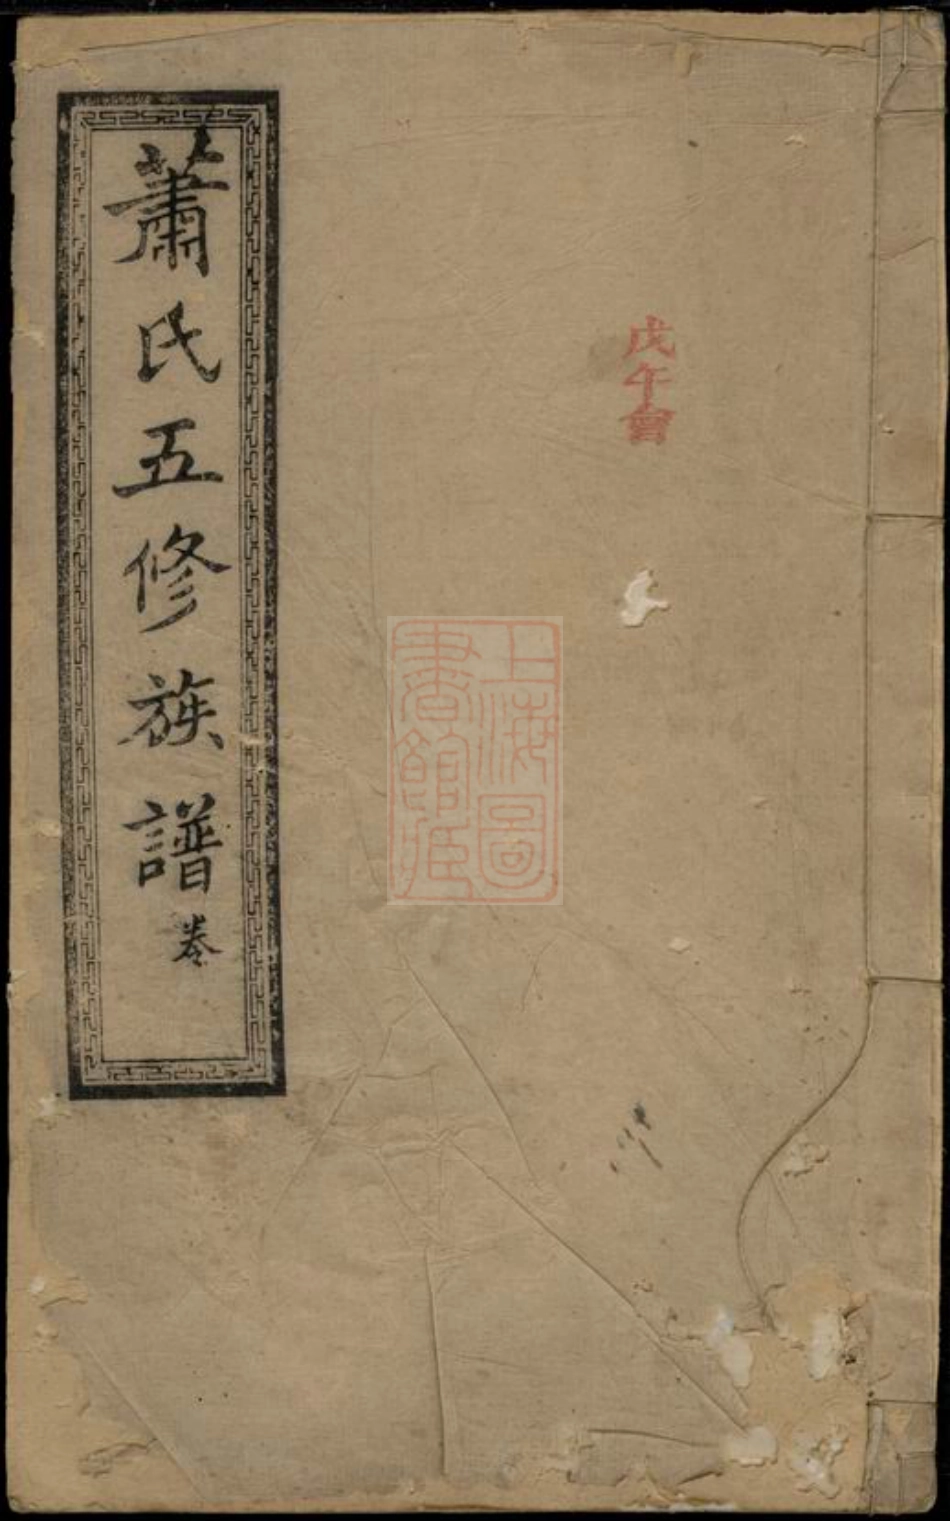 戊午會
上海圖
書館藏
蕭氏五修族譜卷